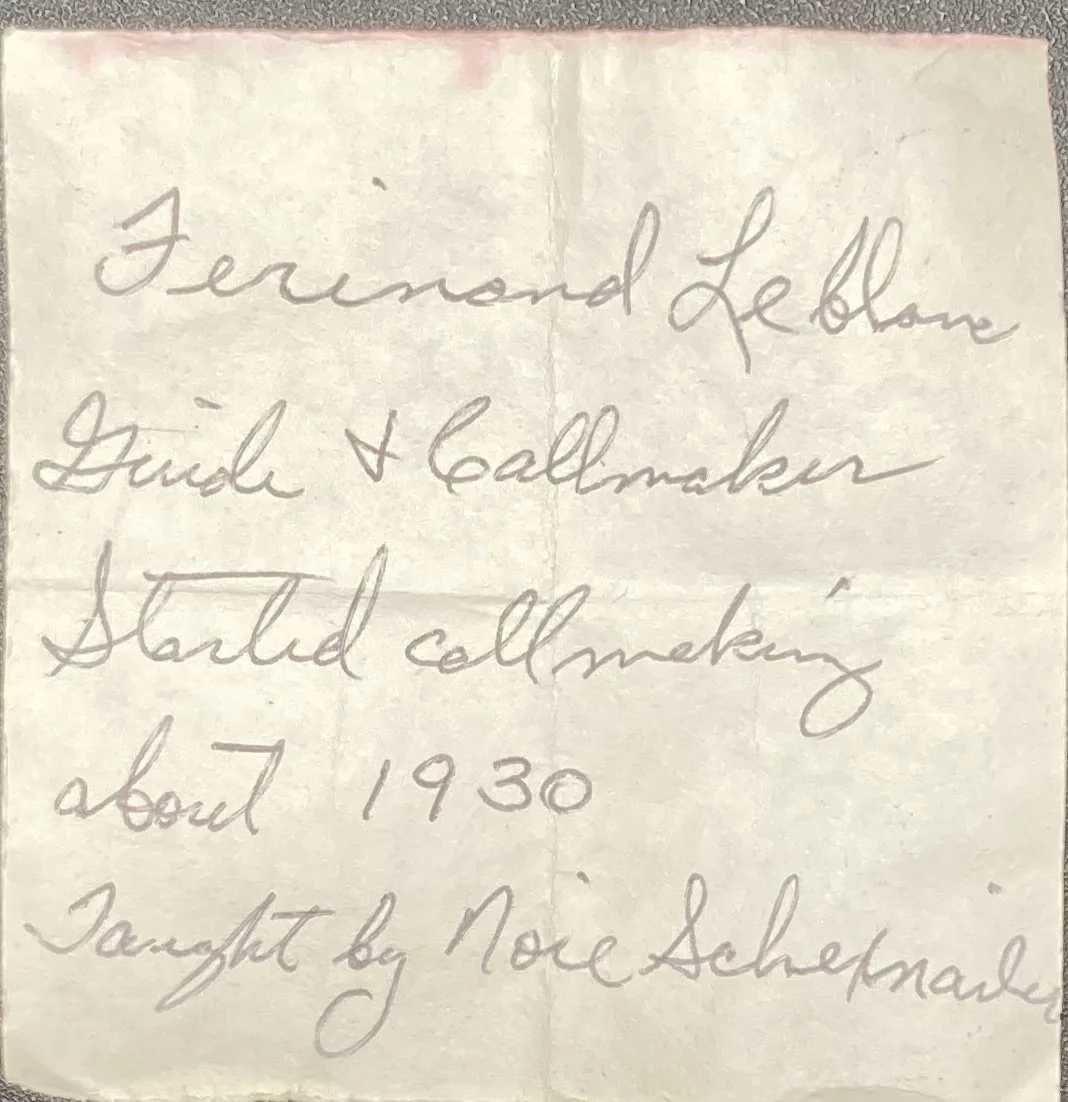 Ferinand Leblanc
Guide & Callmaker
Started callmaking
about 1930
Taught by Noie